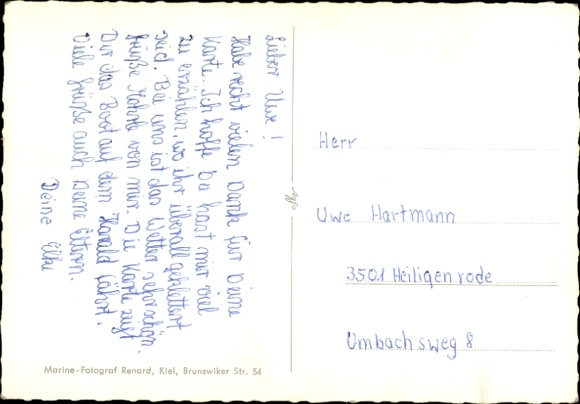 Lieber Uwe!
Habe recht vielen Dank für Deine
Karte. Ich hoffe Du hast mir viel
zu erzählen, wo ihr überall geklettert
seid. Bei uns ist das Wetter sehr schön.
Grüße von mir. Die Karte zeigt
Dir das Boot auf dem Harald fährt.
Viele Grüße auch Deine Eltern.
Deine Elke
Marine-Fotograf Renard, Kiel, Brunswiker Str. 54
Herr
Uwe Hartmann
3501 Heiligenrode
Umbachsweg 8